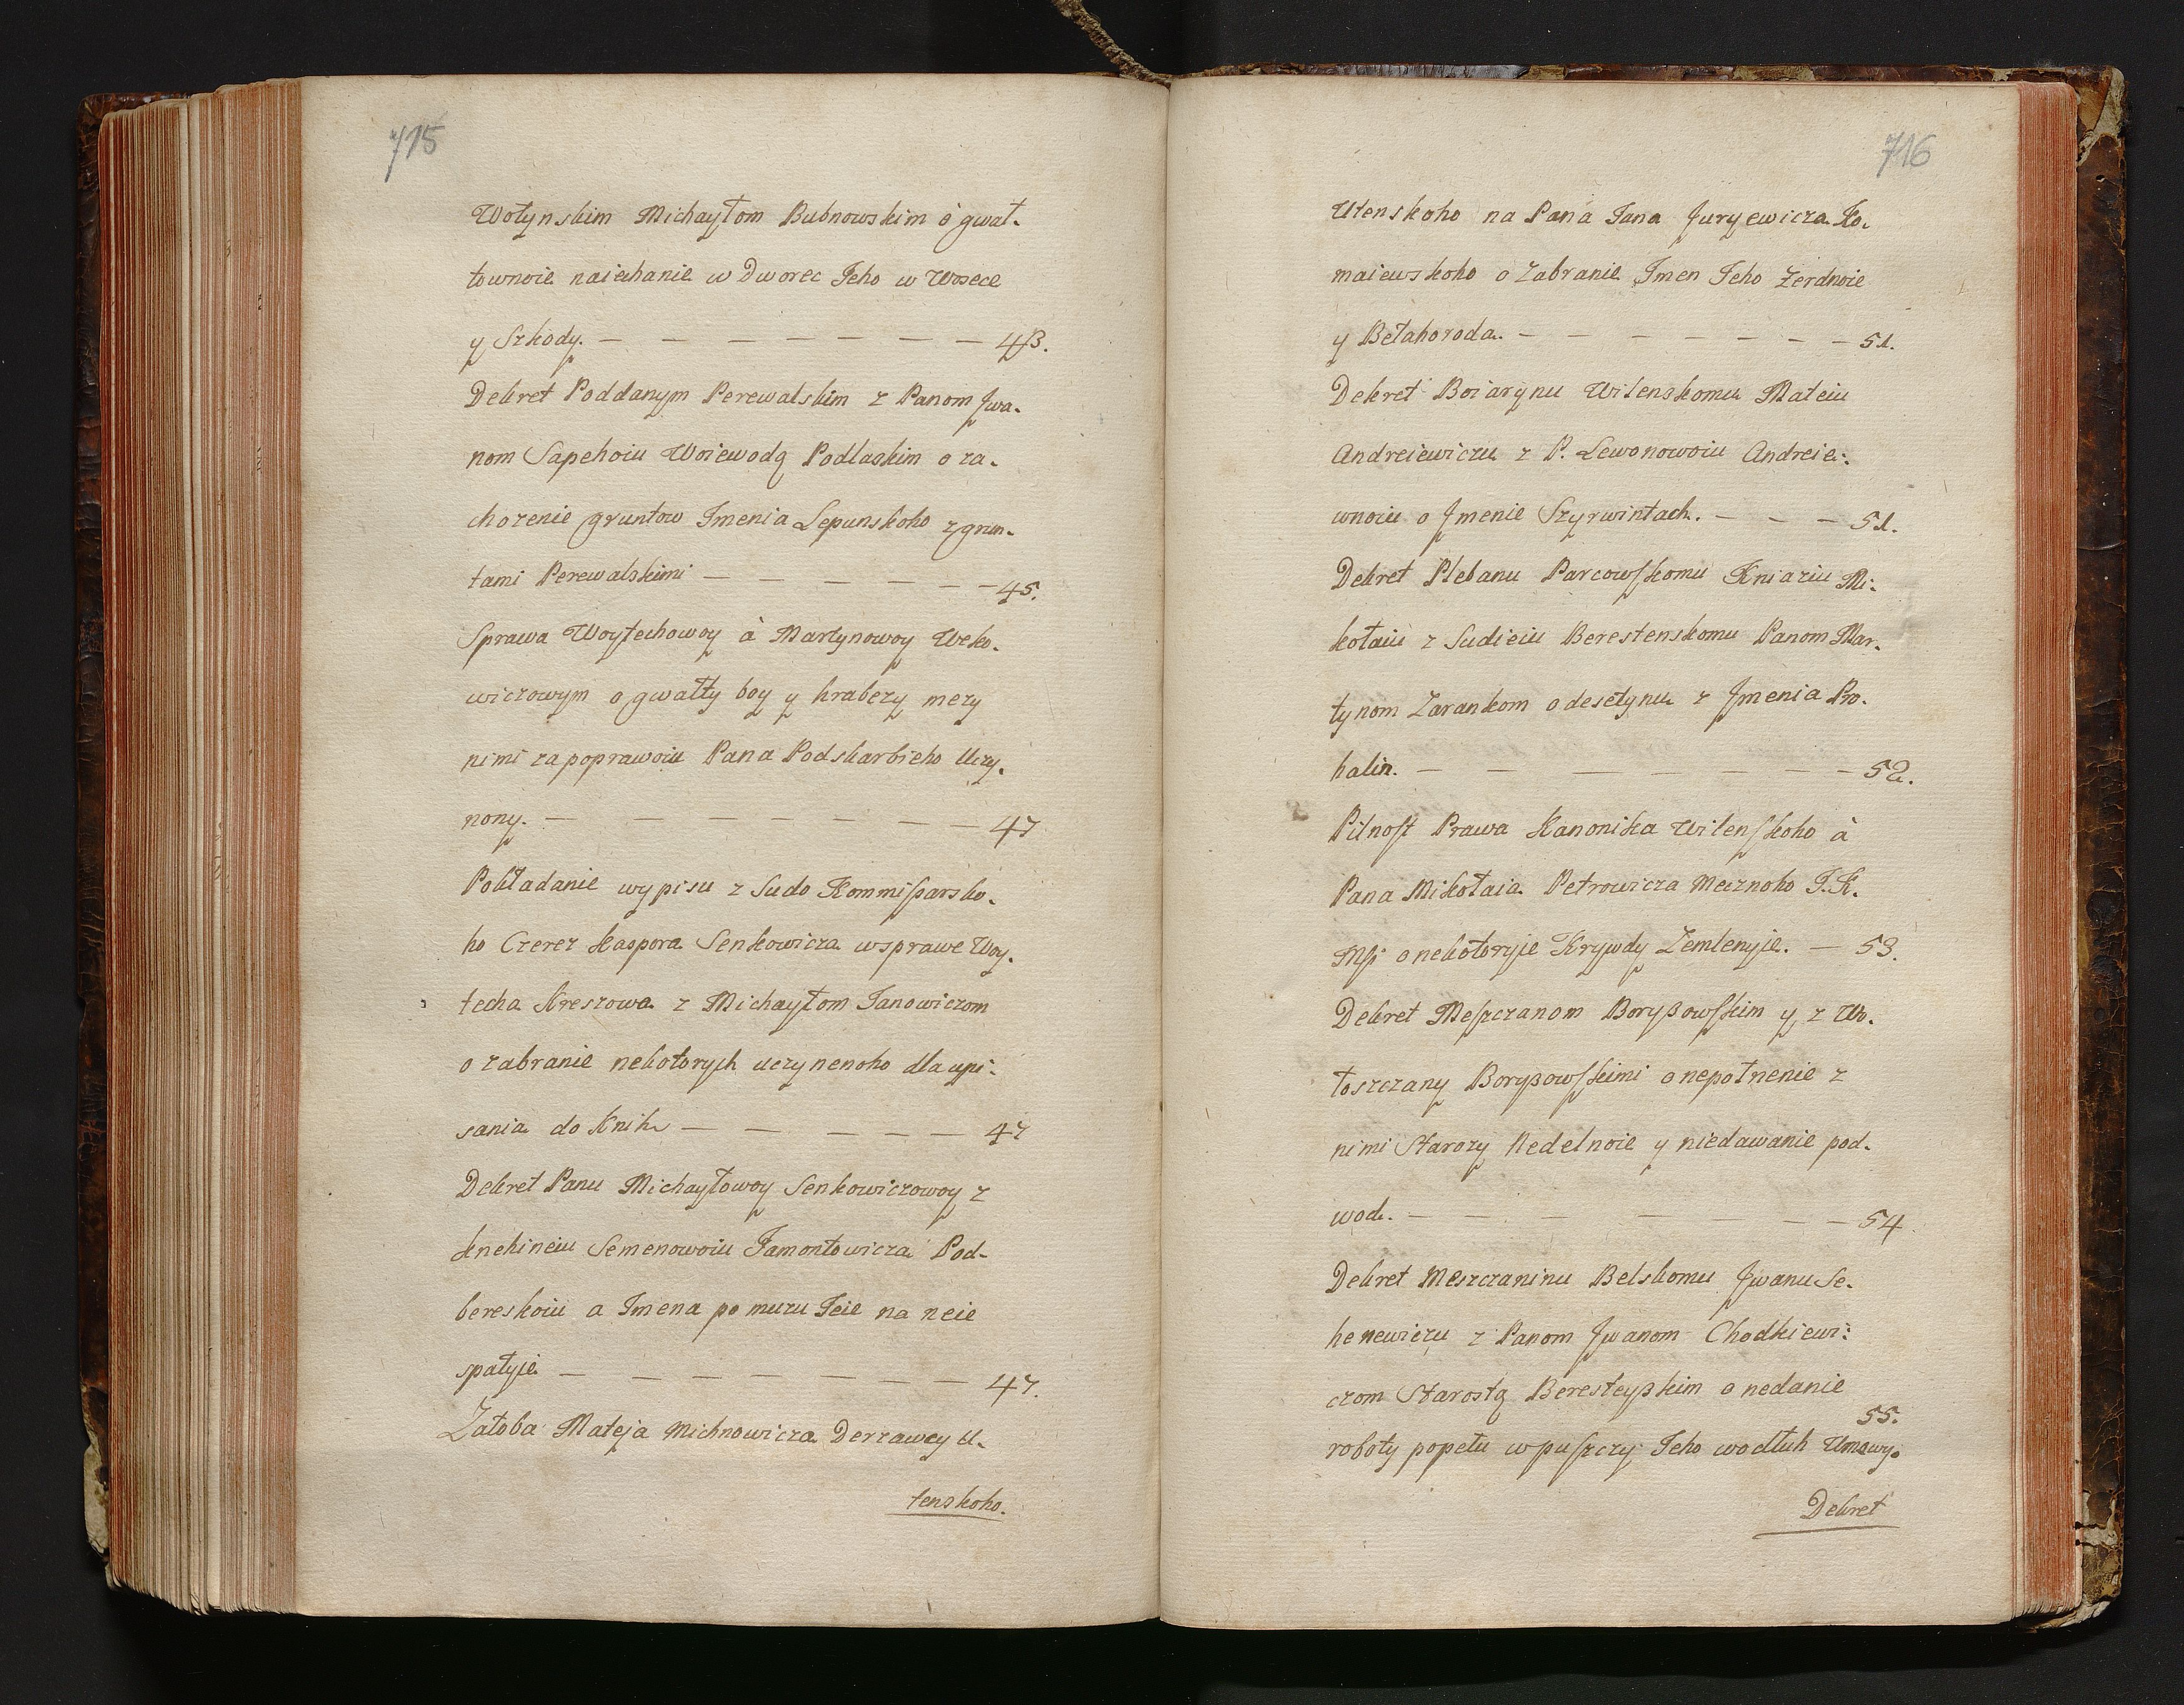 715
Wołynskim Michayłom Bubnowskim ò gwał-
townoie naiechanie w Dworec Jeho w Wosece
y Szkody. — — — — — — — 43.
Dekret Poddanym Perewalskim z Panom Jwa-
nom Sapehoiu Woiewodą Podlaskim o za-
chozenie gruntow Jmenia Lepunskoho z grun-
tami Perewalskimi — — — — — — 45.
Sprawa Woytechowoy à Martynowoy Weko-
wiczowym o gwałty boy y hrabezy mezy
nimi za poprawoiu Pana Podskarbieho Uczy-
nony. — — — — — — — 47
Pokładanie wypisu z Sudo Kommißarsko-
ho Czerez Kaspora Senkowicza w sprawe Woy-
techa Kreszowa z Michayłom Janowiczom
o zabranie nekotorych uczynenoho dla upi-
sania do Knih — — — — — 47
Dekret Panu Michayłowoy Senkowiczowoy z
Knehineiu Semenowoiu Jamontowicza Pod-
bereskoiu a Jmena po muzu Jeie na neie
spałyie — — — — — — — 47.
Załoba Mateja Michnowicza Derzawcy U-
tenskoho.
716
Utenskoho na Pana Jana Juryewicza Ko-
maiewskoho o zabranie Jmen Jeho Zerdnoie
y Betahoroda. — — — — — — — 51.
Dekret Boiarynu Wilenskomu Mateiu
Andreiewiczu z P. Lewonowoiu Andreie-
wnoiu o Jmenie Szyrwintach. — — — 51.
Dekret Plebanu Parcowskomu Kniaziu Mi-
kołaiu z Sudieiu Berestenskomu Panom Mar-
tynom Zarankom o desetynu z Jmenia Pro-
halin. — — — — — — — 52.
Pilnost Prawa Kanonika Wilenskoho à
Pana Mikołaia Petrowicza Mecznoho J. K.
Msi o nekotoryie Krywdy Zemlenyie. — 53.
Dekret Meszczanom Boryßowskim y z Wo-
łoszczany Borysowskimi o nepołnenie z
nimi Starozy Nedelnoie y niedawanie pod-
wod. — — — — — — — 54.
Dekret Meszczaninu Belskomu Jwanu Se-
henewiczu z Panom Jwanom Chodkiewi-
czom Starostą Beresteyßkim o nedanie
55.
roboty popełu w puszczy Jeho wodłuh Umowy.
Dekret